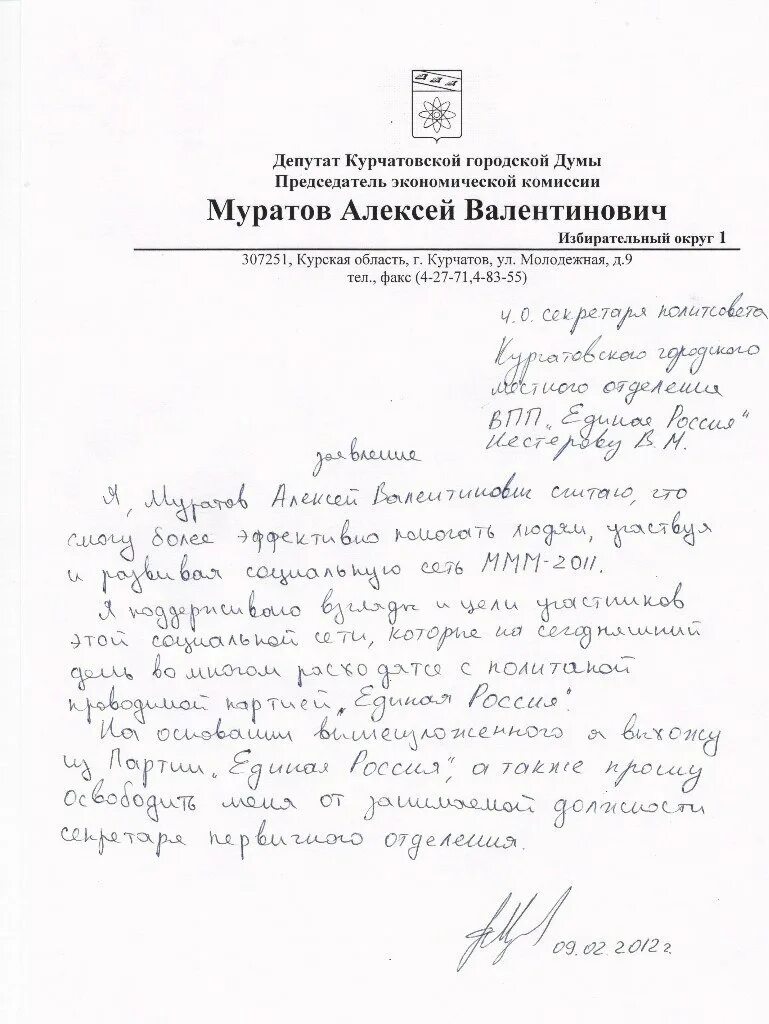 Депутат Курчатовской городской Думы
Председатель экономической комиссии
Муратов Алексей Валентинович
Избирательный округ 1
307251, Курская область, г. Курчатов, ул. Молодежная, д.9
тел., факс (4-27-71,4-83-55)
И.О. секретаря политсовета
Курчатовского городского
местного отделения
ВПП „Единая Россия"
Нестерову В.М.
заявление
Я, Муратов Алексей Валентинович считаю, что
смогу более эффективно помогать людям, участвуя
и развивая социальную сеть МММ-2011.
Я поддерживаю взгляды и цели участников
этой социальной сети, которые на сегодняшний
день во многом расходятся с политикой
проводимой партией „Единая Россия".
На основании вышеизложенного я выхожу
из Партии „Единая Россия", а также прошу
освободить меня от занимаемой должности
секретаря первичного отделения.
09.02.2012 г.